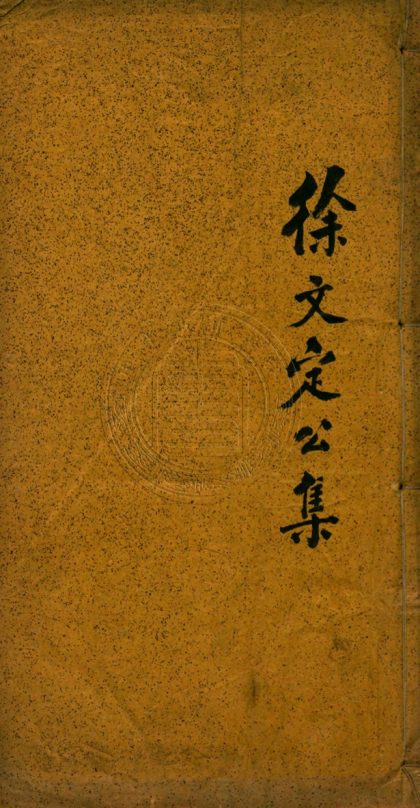 徐文定公集